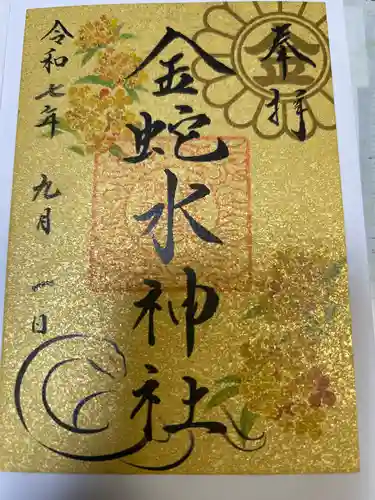 奉拝
金
金蛇水神社
令和七年
九月
一日